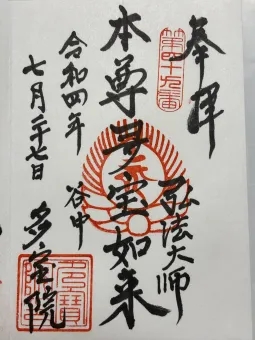 奉拝
第四十九番
弘法大師
本尊多宝如来
谷中
令和四年
七月二十七日
多宝院